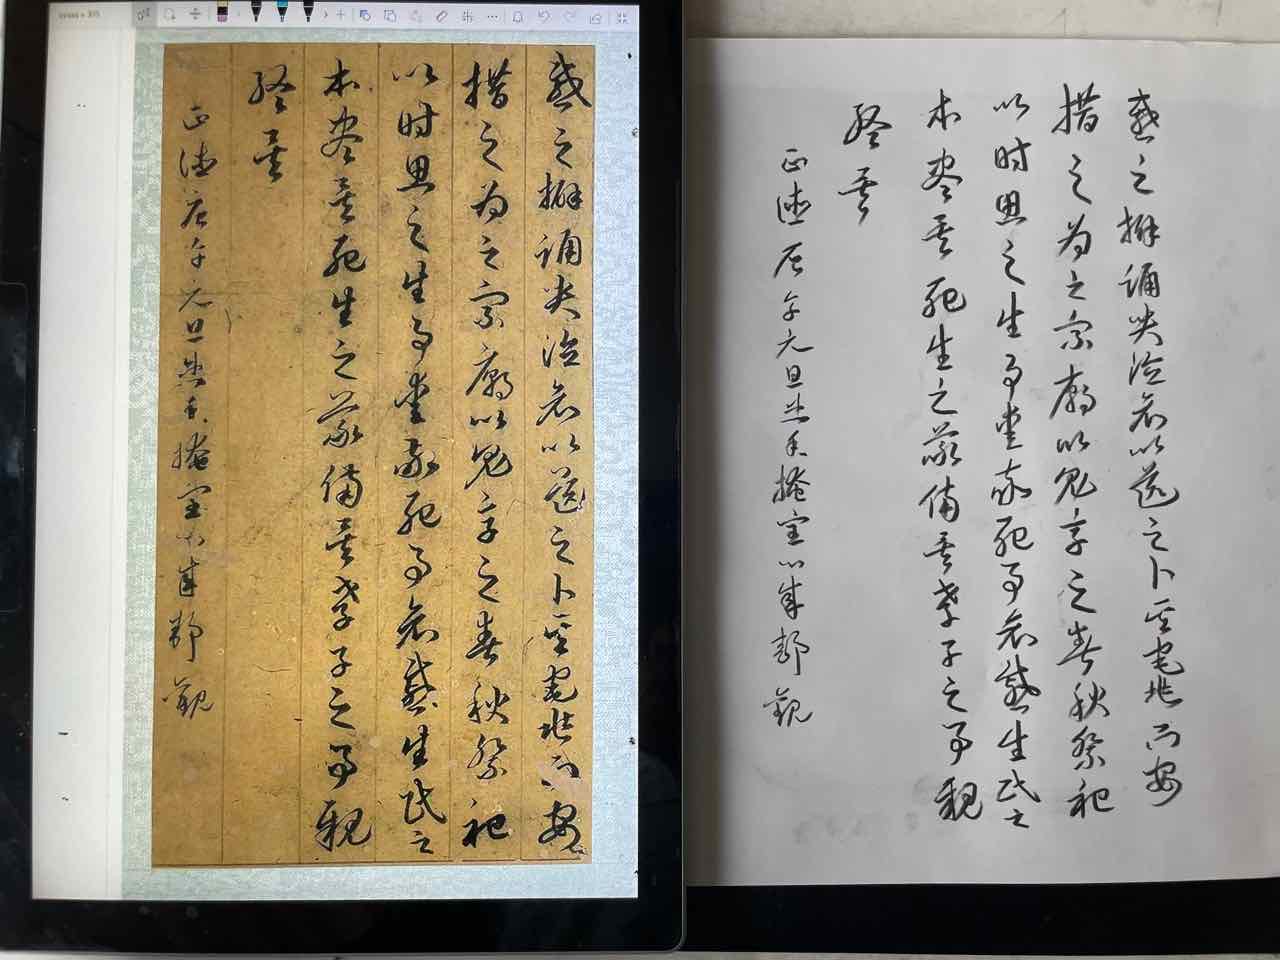 慼之擗踊哭泣哀以送之卜其宅兆而安
措之為之宗廟以鬼享之春秋祭祀
以時思之生事愛敬死事哀慼生民之
本盡矣死生之義備矣孝子之事親
終矣
正德庚午元旦焚香掩室
慼之擗踊哭泣哀以送之卜其宅兆而安
措之為之宗廟以鬼享之春秋祭祀
以時思之生事愛敬死事哀慼生民之
本盡矣死生之義備矣孝子之事親
終矣
正德庚午元旦焚香掩室